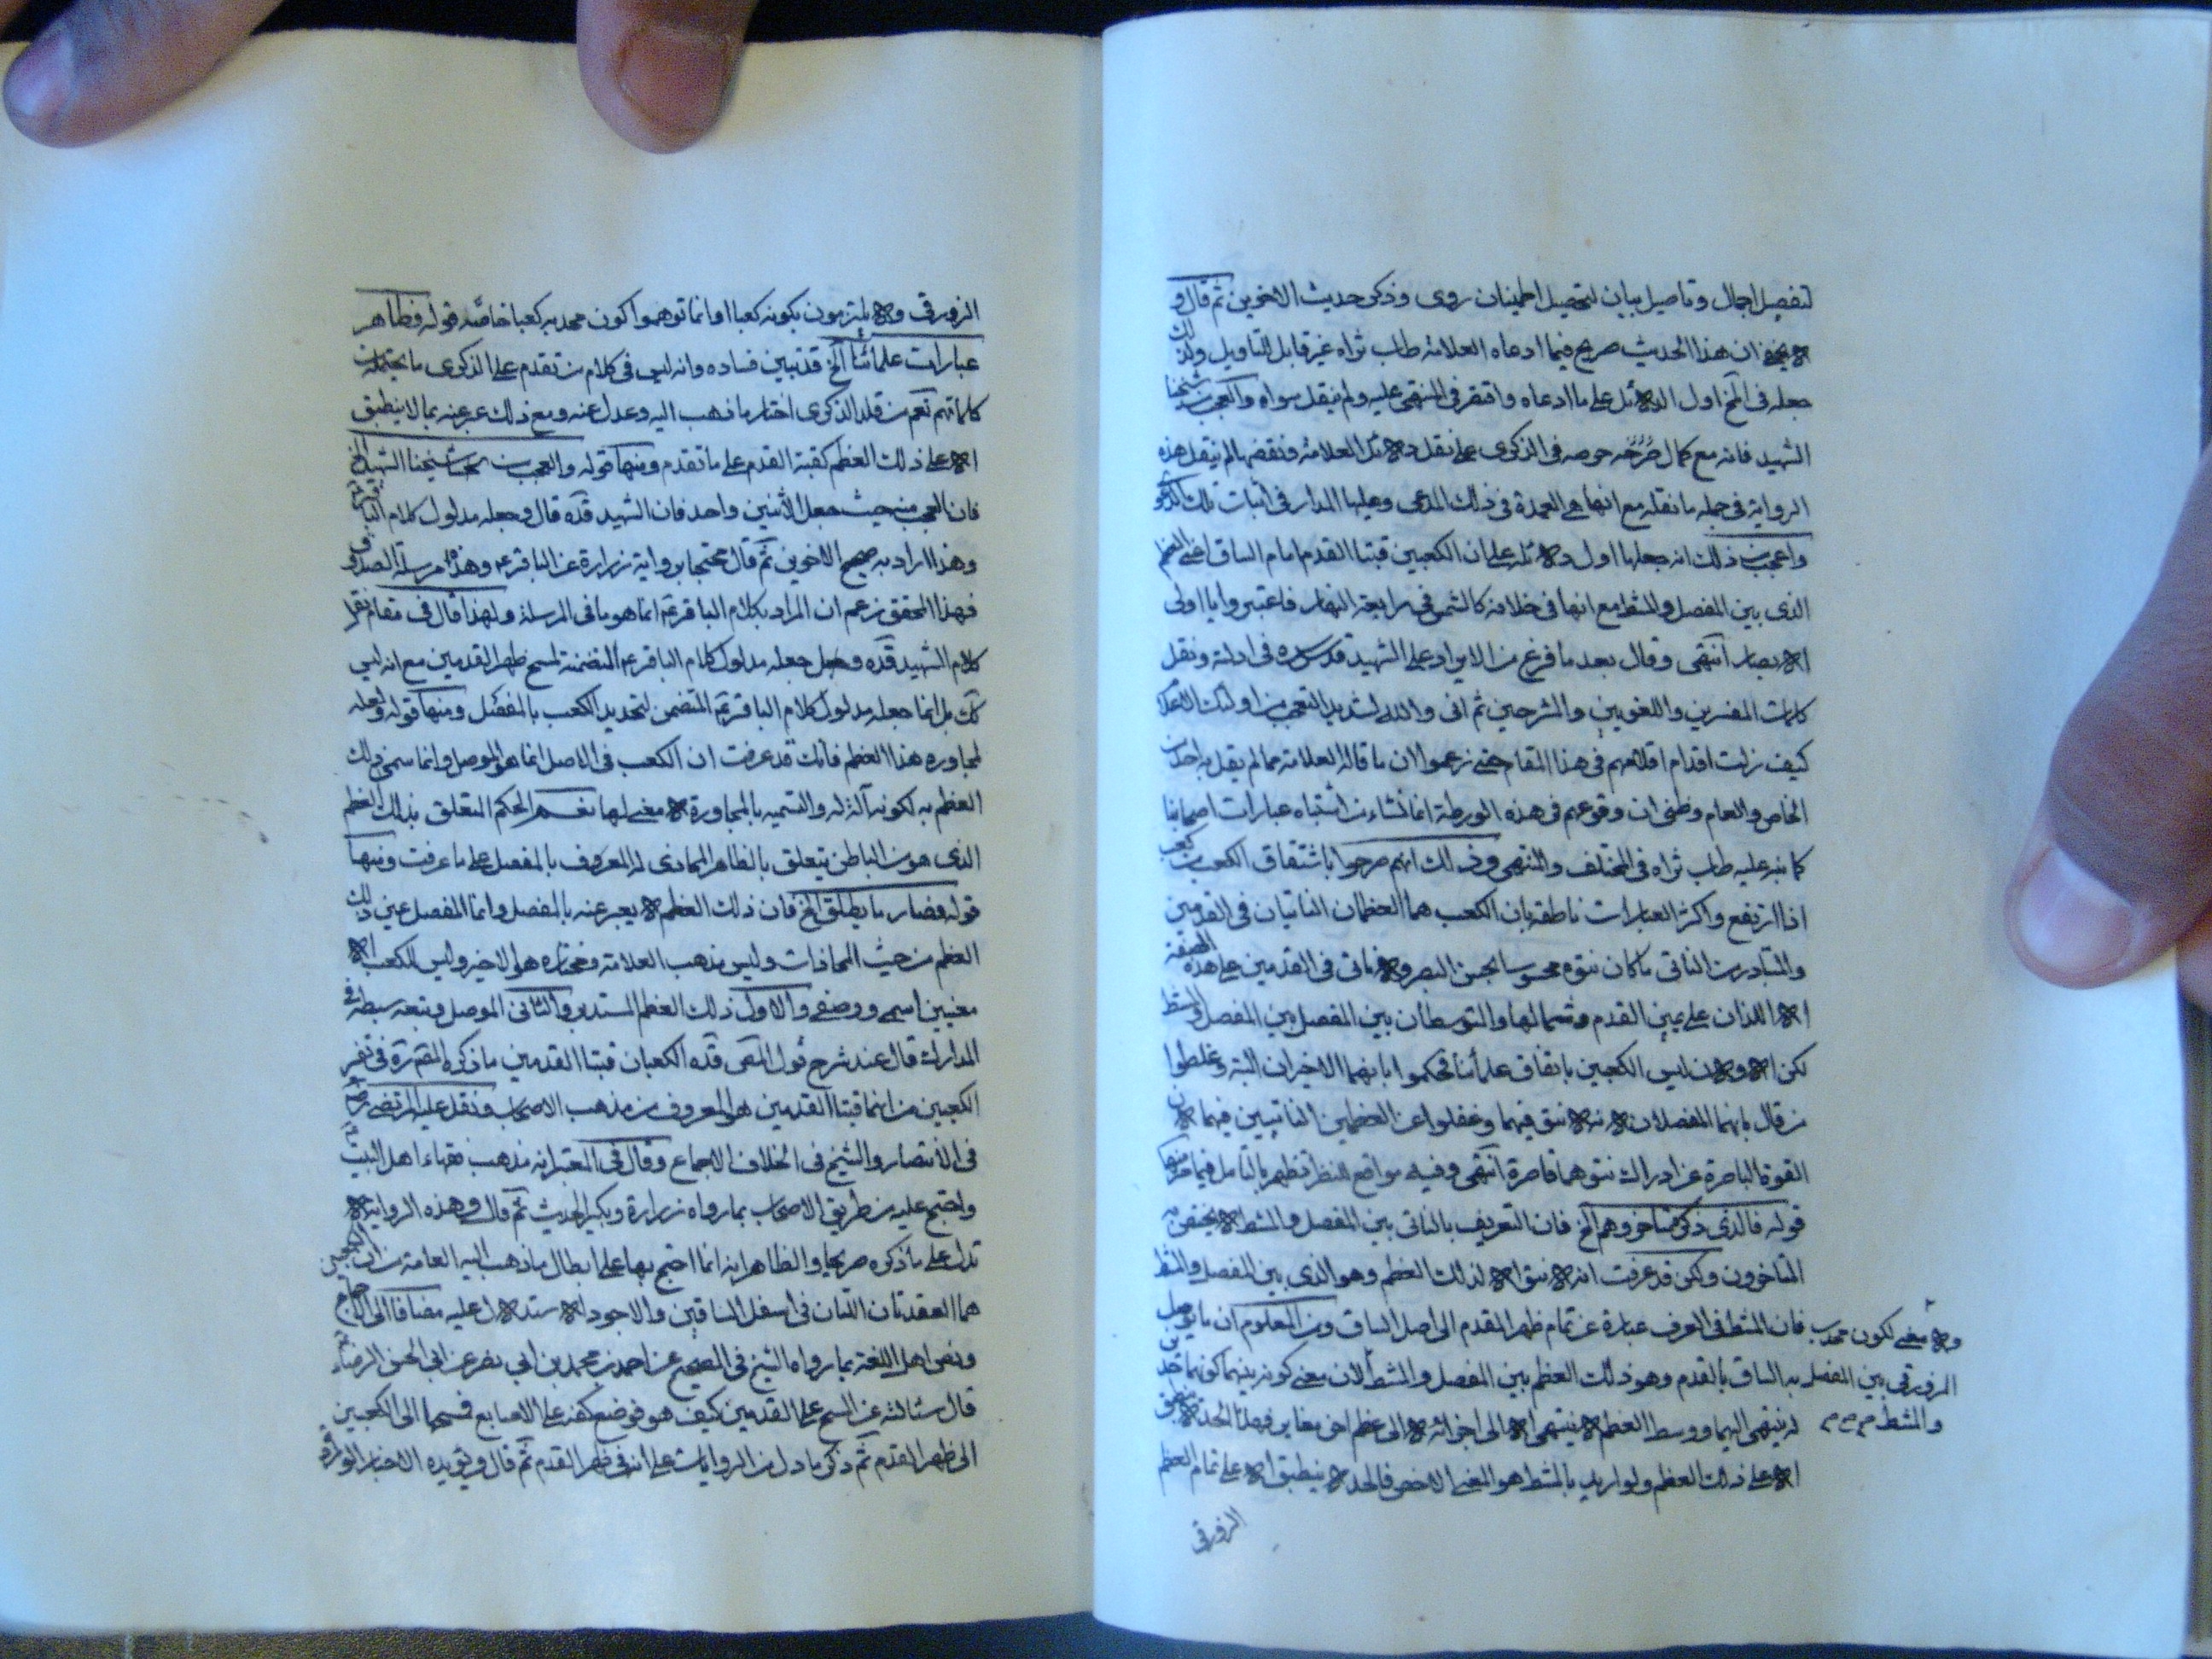 لتفصيل اجمال وتاصيل بيان لتحصيل اطمينان روى وذكر حديث الاخوين ثم قال و
لا يخفى ان هذا الحديث صريح فيما ادعاه العلامة طاب ثراه غير قابل للتاويل ولذلك
جعله في المنتهى اول الدلائل على ما ادعاه واقتصر في المنتهى عليه ولم ينقل سواه والعجب من شيخنا
الشهيد فانه مع كمال حرصه في الذكرى على نقل دلائل العلامة ونقضها لم ينقل هذه
الرواية في جملة ما نقله مع انها هي العمدة في ذلك المدعى وعليها المدار في اثبات تلك الدعوى
واعجب من ذلك انه جعلها اول دلائله على ان الكعبين قبتا القدم امام الساق اعنى العظم
الذى بين المفصل والمشط مع انها في خلافه كالشمس في رابعة النهار فاعتبروا يا اولى
الابصار انتهى وقال بعد ما فرغ من الايراد على الشهيد قدس سره في ادلته ونقل
كلمات المفسرين واللغويين والمشرحين ثم انى والله لشديد التعجب من اولئك الاعلام
كيف زلت اقدام اقلامهم في هذا المقام حتى زعموا ان ما قاله العلامة مما لم يقل به احد من
الخاص والعام وظنى ان وقوعهم في هذه الورطة انما نشاء من اشتباه عبارات اصحابنا
كما نبه عليه طاب ثراه في المختلف والمنتهى وذلك انهم صرحوا باشتقاق الكعب من كعب
اذا ارتفع واكثر العبارات ناطقة بان الكعب هما العظمان الناتيان في القدمين
والمتبادر من الناتى ما كان نتوه محسوسا بحس البصر ولا ناتى في القدمين على هذه الصفة
الا اللذان على يمين القدم وشمالها والمتوسطان بين المفصل بين المفصل والمشط
لكن الاولان ليس الكعبين باتفاق علمائنا فحكموا بانهما الاخيران البتة وغلطوا
من قال بانهما المفصلان لانه لا نتو فيهما وغفلوا عن العظمين الناتيين فيهما لان
القوة الباصرة عن ادراك نتوهما قاصرة انتهى وفيه مواقع للنظر تظهر بالتامل فيما مر منها
قوله فالذى ذكره متاخروهم الخ فان التعريف بالناتى بين المفصل والمشط لا يختص به
المتاخرون ولكن قد عرفت انه لا نتو الا لذلك العظم وهو الذى بين المفصل والمشط
فان المشط في العرف عبارة عن تمام ظهر القدم الى اصل الساق ومن المعلوم ان ما يوصل
به الساق بالقدم وهو ذلك العظم بين المفصل والمشط لان معنى كونه بينهما كونهما حدين
له ينتهى اليهما ووسط العظم لا ينتهى الا الى اجزائه لا الى عظم اخر مغاير فهذا الحد لا ينطبق
الا على ذلك العظم ولو اريد بالمشط هو المعنى الاخص فالحد لا ينطبق الا على تمام العظم
ولا معنى لكون محدب
الزورقى بين المفصل
والمشط
الزورقى
الزورقى ولا يلتزمون بكونه كعبا وانما توهموا كون محدبه كعبا خاصة قوله فظاهر
عبارات علمائنا الخ قد تبين فساده وانه ليس في كلام من تقدم على الذكرى ما يحتمله من
كلماتهم نعم من قلد الذكرى اختار ما ذهب اليه وعدل عنه ومع ذلك عبر عنه بما لا ينطبق
الا على ذلك العظم كقبة القدم على ما تقدم ومنها قوله والعجب من شيخنا الشهيد الخ
فان العجب منه حيث جعل الاثنين واحد فان الشهيد قده قال وجعله مدلول كلام الباقر
وهذا اراد به صحيح الاخوين ثم قال محتجا برواية زرارة عن الباقر ع وهذه مرسلة الصدوق
فهذا المحقق زعم ان المراد بكلام الباقر ع انما هو ما في المرسلة ولهذا قال في مقام نقل
كلام الشهيد قده وجعله مدلول كلام الباقر ع المتضمنة لمسح ظهر القدمين مع انه ليس
كك بل انما جعله مدلول كلام الباقر ع المتضمن لتحديد الكعب بالمفصل ومنها قوله ولعله
لمجاوره هذا العظم فانك قد عرفت ان الكعب في الاصل انما هو الموصل وانما سمى ذلك
العظم به لكونه آلة له والتسميه بالمجاورة لا معنى لها نعم الحكم المتعلق بذلك العظم
الذى هو من الباطن يتعلق بالظاهر المحاذى له المعروف بالمفصل على ما عرفت ومنها
قوله فصار ما يطلق الخ فان ذلك العظم لا يعبر عنه بالمفصل وانما المفصل عين ذلك
العظم من حيث المحاذات وليس مذهب العلامة ومختاره هو الاخير وليس للكعب الا
معنيين اسمى ووصفى والاول ذلك العظم المستدير والثانى الموصل وتبعه سبطه في
المدارك قال عند شرح قول المص قده الكعبان قبتا القدمين ما ذكره المص ره في تفسير
الكعبين من انهما قبتا القدمين هو المعروف من مذهب الاصحاب ونقل عليه المرتضى رض
في الانتصار والشيخ في الخلاف الاجماع وقال في المعتبر انه مذهب فقهاء اهل البيت
واحتج عليه من طريق الاصحاب بما رواه زرارة وبكير الحديث ثم قال وهذه الرواية لا
تدل على ما ذكره صريحا والظاهر انه انما احتج بها على ابطال ما ذهب اليه العامة من ان الكعبين
هما العقدتان اللتان في اسفل الساقين والاجود الاستدلال عليه مضافا الى الاجماع
ونص اهل اللغة بما رواه الشيخ في الصحيح عن احمد بن محمد بن ابى نصر عن ابى الحسن الرضا ع
قال سئالته عن المسح على القدمين كيف هو فوضع كفه على الاصابع فمسحها الى الكعبين
الى ظهر القدم ثم ذكر ما دل من الروايات على انه في ظهر القدم ثم قال ويؤيده الاخبار الواردة